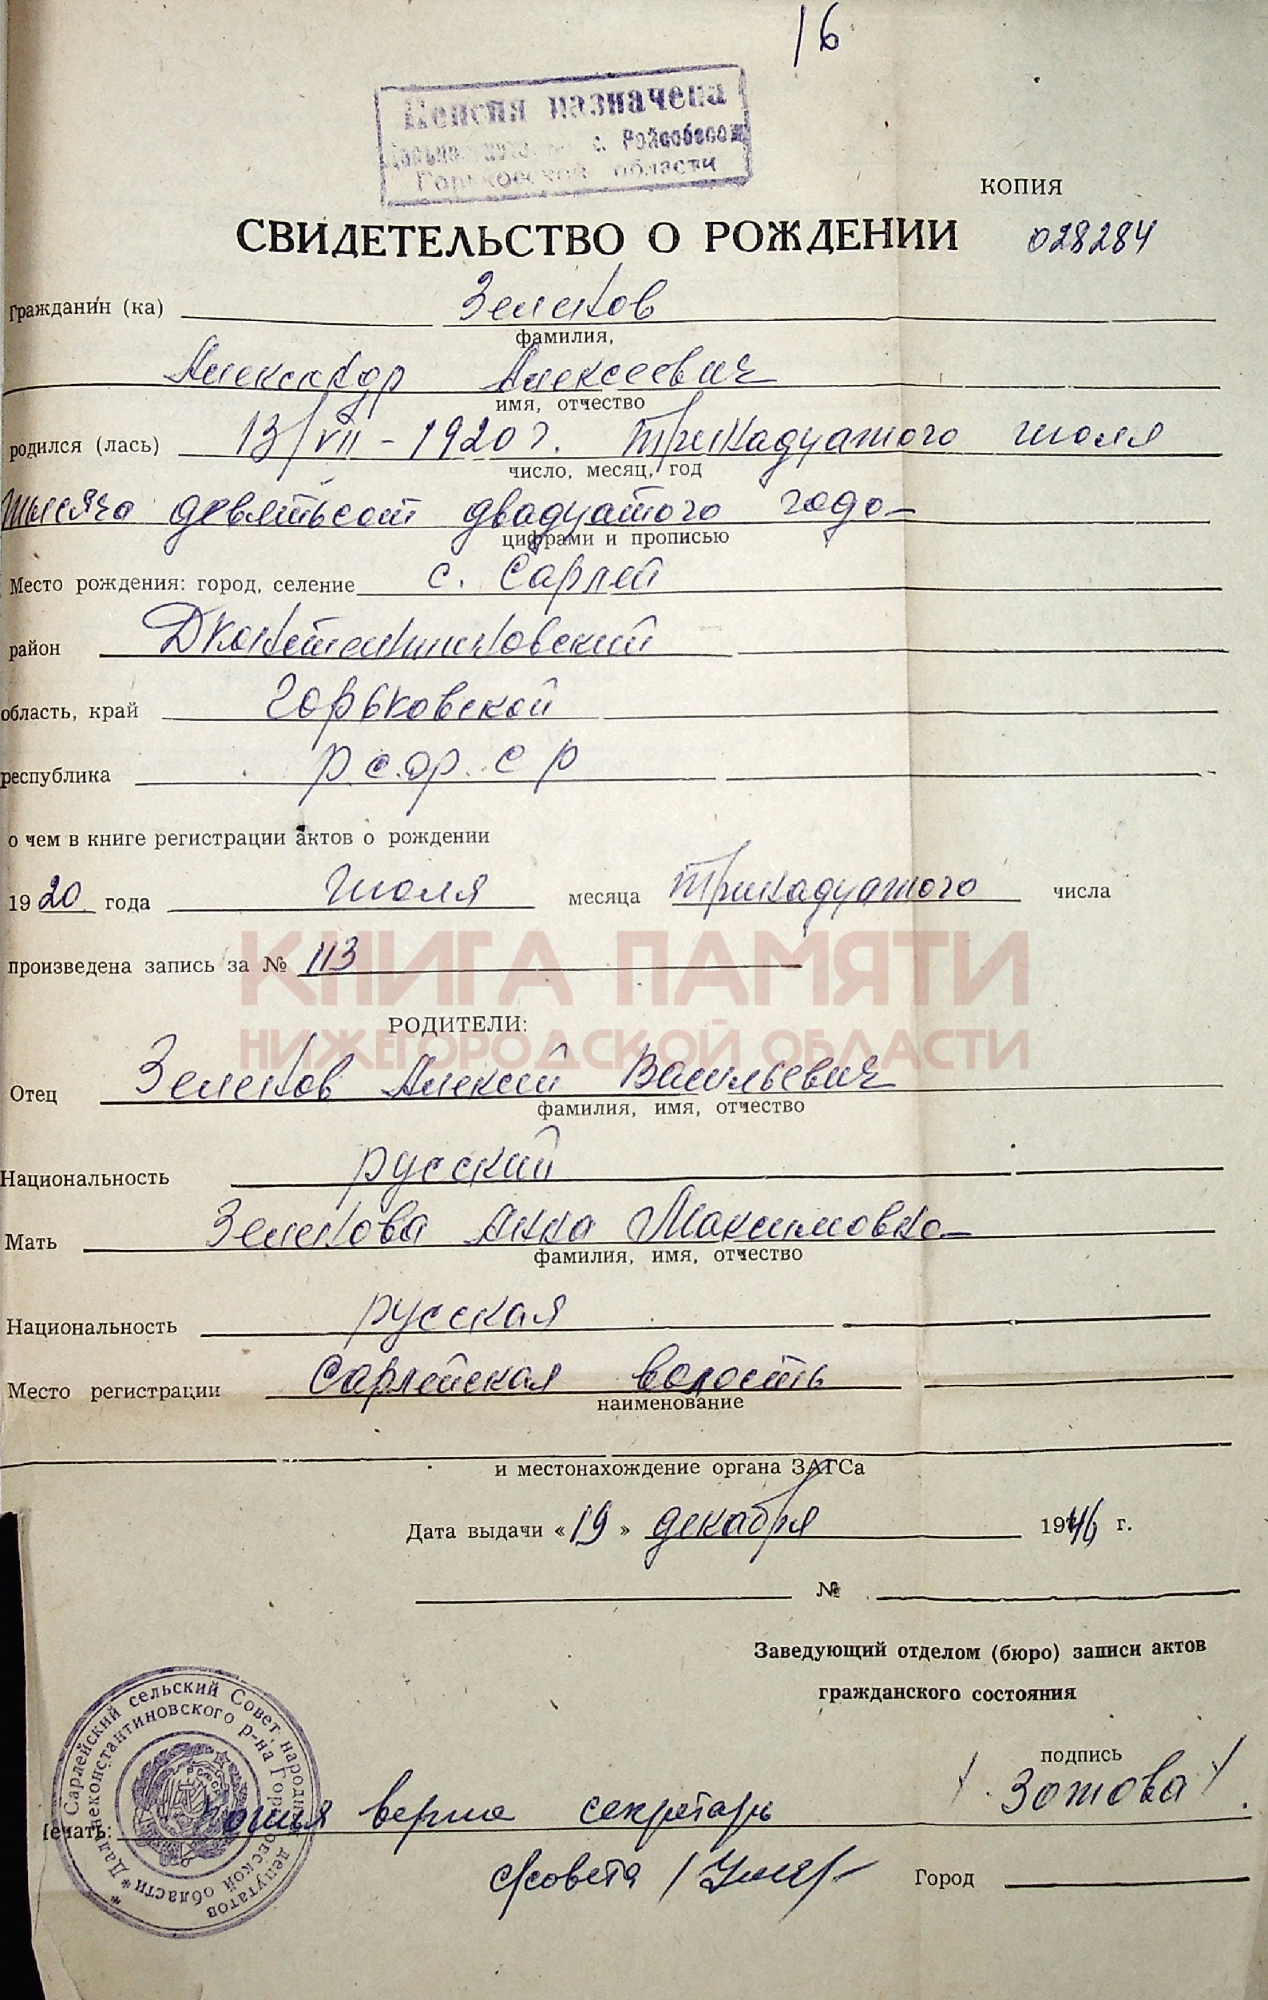 16
Пенсия назначена
Райсобесом
Горьковской области
КОПИЯ
СВИДЕТЕЛЬСТВО О РОЖДЕНИИ 028284
Гражданин (ка) Зеленов
фамилия,
Александр Алексеевич
имя, отчество
родился (лась) 13/VII - 1920 г. тринадцатого июля
число, месяц, год
тысяча девятьсот двадцатого года
цифрами и прописью
Место рождения: город, селение с. Сарлей
район Дконстантиновский
область, край Горьковской
республика РСФСР
о чем в книге регистрации актов о рождении
1920 года Июля месяца тринадцатого числа
произведена запись за № 113
КНИГА ПАМЯТИ
НИЖЕГОРОДСКОЙ ОБЛАСТИ
РОДИТЕЛИ:
Отец Зеленов Алексей Васильевич
фамилия, имя, отчество
Национальность русский
Мать Зеленова Анна Максимовна
фамилия, имя, отчество
Национальность русская
Место регистрации Сарлейская волость
наименование
и местонахождение органа ЗАГСа
Дата выдачи «19» декабря 1946 г.
№
Заведующий отделом (бюро) записи актов
гражданского состояния
подпись
/ Зотова /
Печать: копия верна секретарь
с/совета
Город
Сарлейский сельский Совет народных депутатов
Дальнеконстантиновского р-на Горьковской области